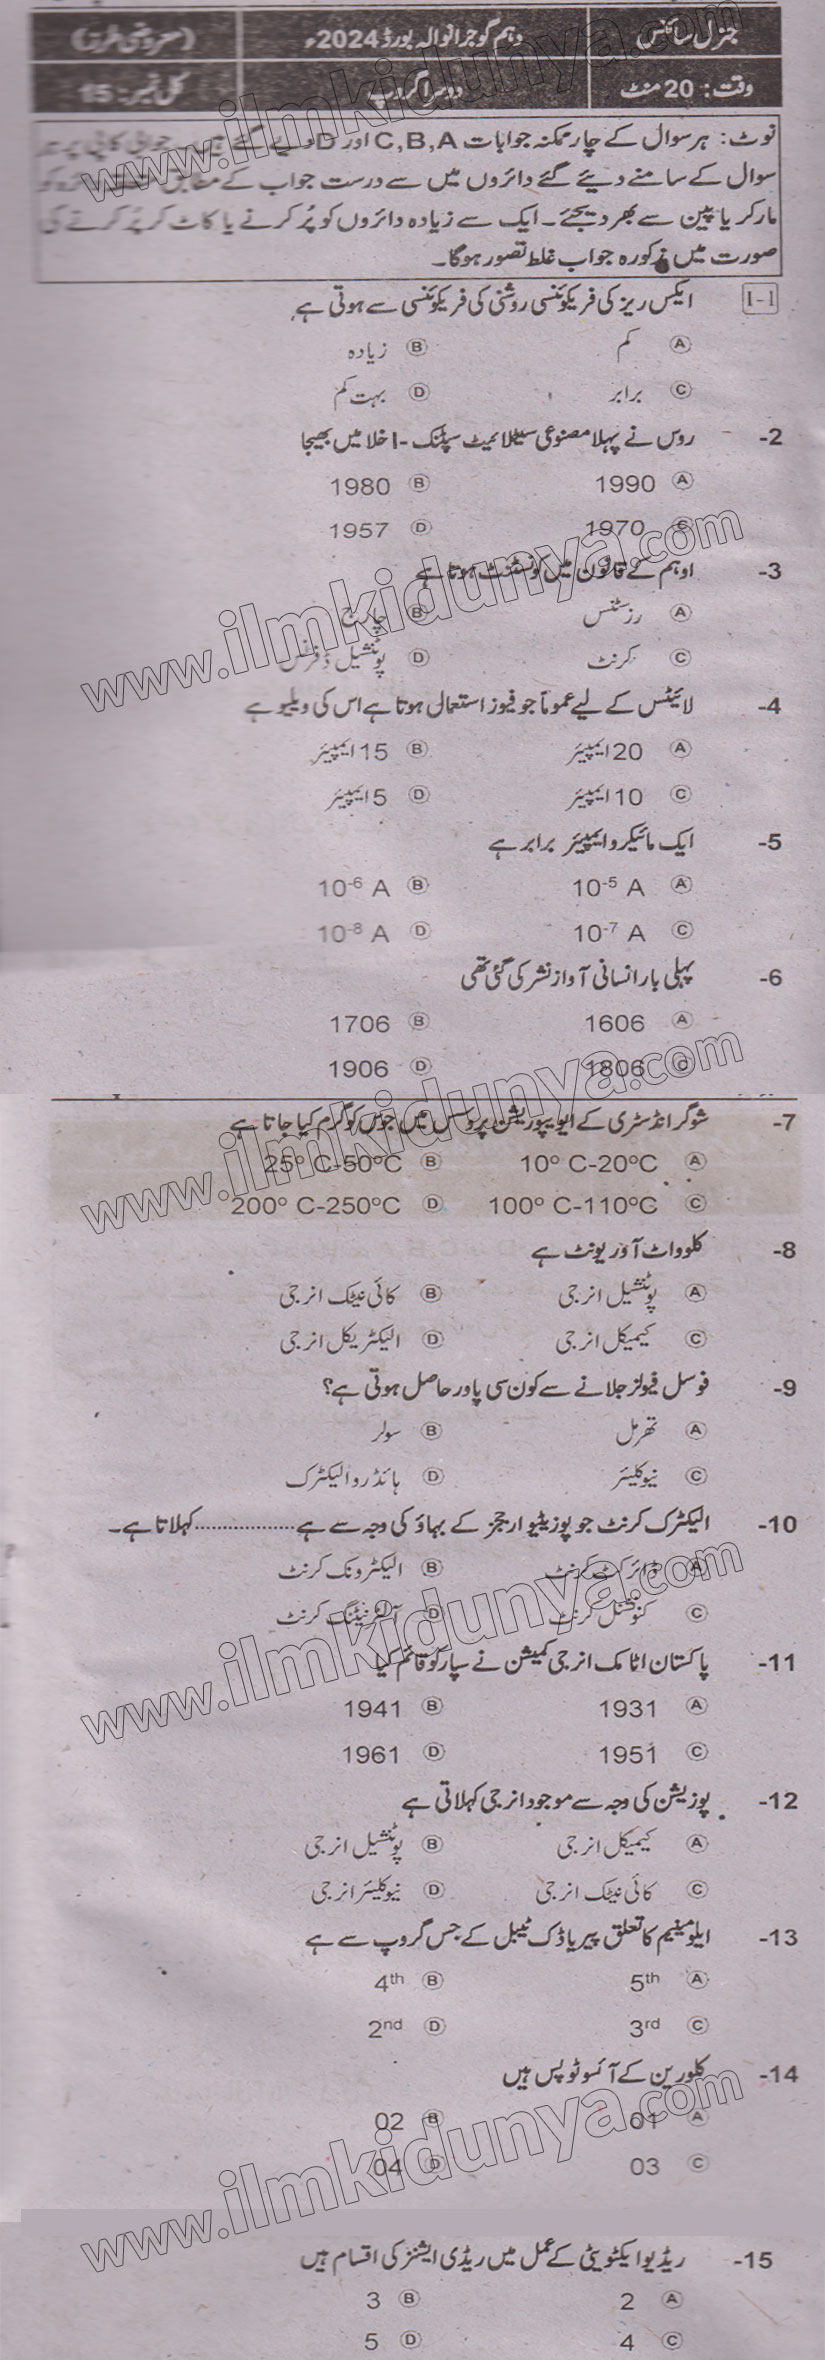 جنرل سائنس دہم گوجرانوالہ بورڈ 2024ء (معروضی طرز)
وقت: 20 منٹ دوسرا گروپ کل نمبر: 15
نوٹ: ہر سوال کے چار ممکنہ جوابات C,B,A اور D دیے گئے ہیں۔ جوابی کاپی پر ہر
سوال کے سامنے دیئے گئے دائروں میں سے درست جواب کے مطابق متعلقہ دائرہ کو
مارکر یا پین سے بھر دیجئے۔ ایک سے زیادہ دائروں کو پُر کرنے یا کاٹ کر پُر کرنے کی
صورت میں مذکورہ جواب غلط تصور ہوگا۔
1-1 ایکس ریز کی فریکوئنسی روشنی کی فریکوئنسی سے ہوتی ہے
A کم B زیادہ
C برابر D بہت کم
-2 روس نے پہلا مصنوعی سیٹلائیٹ سپٹنک -I خلا میں بھیجا
A 1990 B 1980
C 1970 D 1957
-3 اوہم کے قانون میں کونسٹنٹ ہوتا ہے
A رزسٹنس B چارج
C کرنٹ D پوٹینشیل ڈفرنس
-4 لائیٹس کے لیے عموماً جو فیوز استعمال ہوتا ہے اس کی ویلیو ہے
A 20 ایمپیئر B 15 ایمپیئر
C 10 ایمپیئر D 5 ایمپیئر
-5 ایک مائیکرو ایمپیئر برابر ہے
A 10⁻⁵ A B 10⁻⁶ A
C 10⁻⁷ A D 10⁻⁸ A
-6 پہلی بار انسانی آواز نشر کی گئی تھی
A 1606 B 1706
C 1806 D 1906
-7 شوگر انڈسٹری کے ایوپوریشن پروسس میں جوس کو گرم کیا جاتا ہے
A 10º C-20ºC B 25º C-50ºC
C 100º C-110ºC D 200º C-250ºC
-8 کلوواٹ آور یونٹ ہے
A پوٹینشیل انرجی B کائی نیٹک انرجی
C کیمیکل انرجی D الیکٹریکل انرجی
-9 فوسل فیولز جلانے سے کون سی پاور حاصل ہوتی ہے؟
A تھرمل B سولر
C نیوکلیئر D ہائڈروالیکٹرک
-10 الیکٹرک کرنٹ جو پوزیٹیو ارججز کے بہاؤ کی وجہ سے ہے .................. کہلاتا ہے۔
A ڈائرکٹ کرنٹ B الیکٹرونک کرنٹ
C کنونشنل کرنٹ D آلٹرنیٹنگ کرنٹ
-11 پاکستان اٹامک انرجی کمیشن نے سپارکو قائم کیا
A 1931 B 1941
C 1951 D 1961
-12 پوزیشن کی وجہ سے موجود انرجی کہلاتی ہے
A کیمیکل انرجی B پوٹینشیل انرجی
C کائی نیٹک انرجی D نیوکلیئر انرجی
-13 ایلومینیم کا تعلق پیریاڈک ٹیبل کے جس گروپ سے ہے
A 5th B 4th
C 3rd D 2nd
-14 کلورین کے آئسوٹوپس ہیں
A 01 B 02
C 03 D 04
-15 ریڈیو ایکٹویٹی کے عمل میں ریڈی ایشنز کی اقسام ہیں
A 2 B 3
C 4 D 5
www.ilmkidunya.com
www.ilmkidunya.com
www.ilmkidunya.com
www.ilmkidunya.com
www.ilmkidunya.com